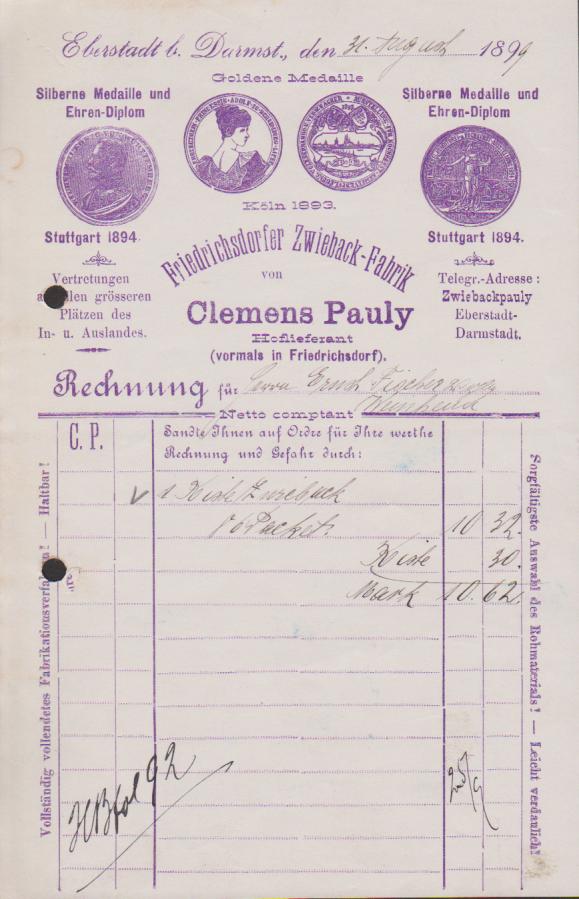 Eberstadt b. Darmst., den 31. August 1899
Goldene Medaille
Silberne Medaille und
Ehren-Diplom
Silberne Medaille und
Ehren-Diplom
Köln 1893.
Stuttgart 1894.
Stuttgart 1894.
Friedrichsdorfer Zwieback-Fabrik
von
Clemens Pauly
Hoflieferant
(vormals in Friedrichsdorf).
Vertretungen
allen grösseren
Plätzen des
In- u. Auslandes.
Telegr.-Adresse:
Zwiebackpauly
Eberstadt-
Darmstadt.
Rechnung für Herrn Ernst Fischer
Netto comptant
C. P.
Sandte Ihnen auf Ordre für Ihre werthe
Rechnung und Gefahr durch:
1 Kiste Zwieback
Packet. 10 32.
Kiste 30.
Mark 10.62.
Vollständig vollendetes Fabrikationsverfahren! — Haltbar!
Sorgfältigste Auswahl des Rohmaterials! — Leicht verdaulich!
92
25/9